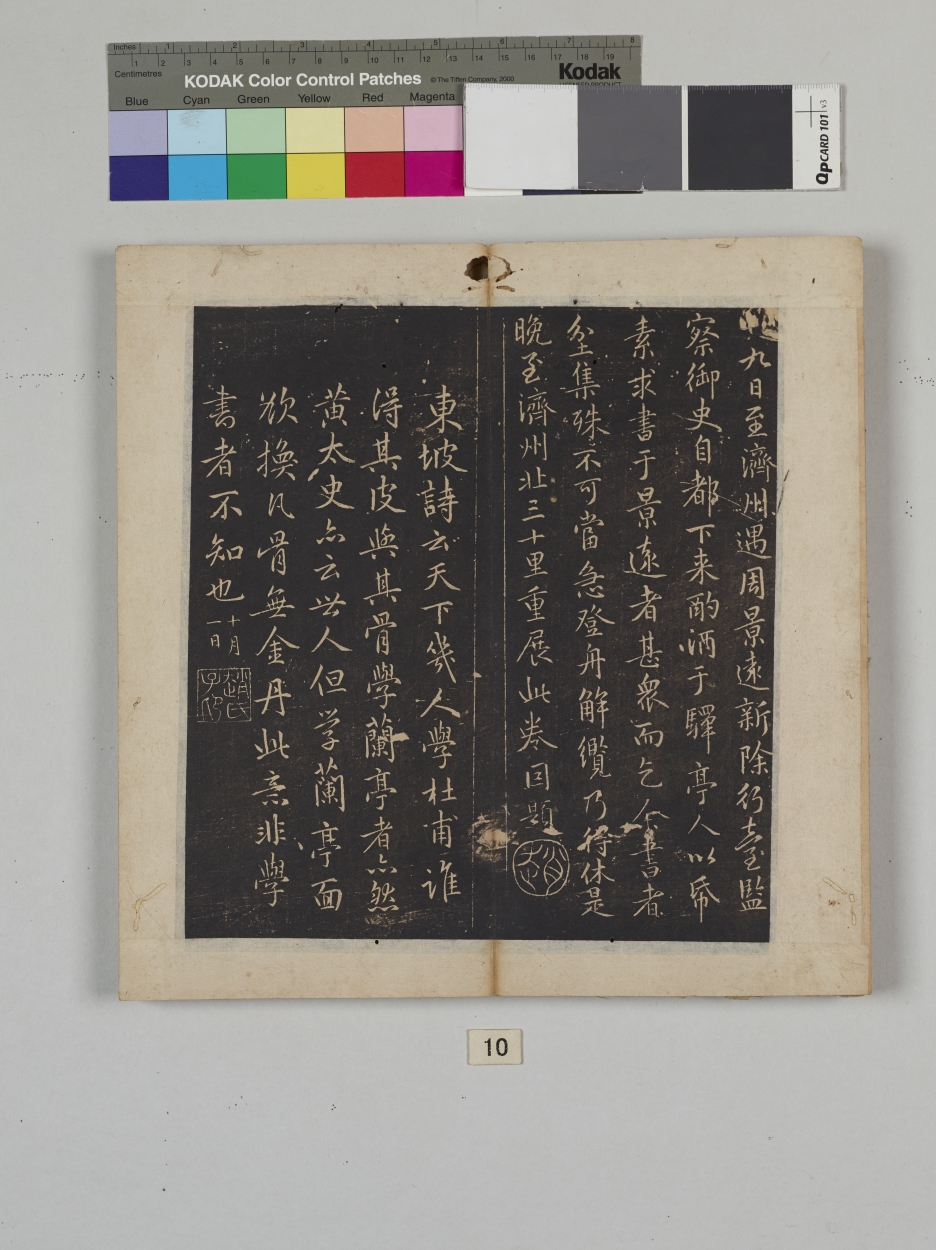 Inches 1 2 3 4 5 6 7 8
Centimetres 1 2 3 4 5 6 7 8 9 10 11 12 13 14 15 16 17 18 19
KODAK Color Control Patches © The Tiffen Company, 2000 Kodak
LICENSED PRODUCT
Blue Cyan Green Yellow Red Magenta
QPCARD 101 v3
九日至濟州遇周景遠新除行臺監
察御史自都下来酌酒于驛亭人以帋
素求書于景遠者甚衆而乞余書者
坌集殊不可當急登舟解纜乃得休是
晚至濟州北三十里重展此卷因題
趙
東坡詩云天下幾人學杜甫誰
得其皮與其骨學蘭亭者亦然
黄太史亦云世人但学蘭亭面
欲換凡骨無金丹此意非學
書者不知也十月一日
趙氏子昂
10